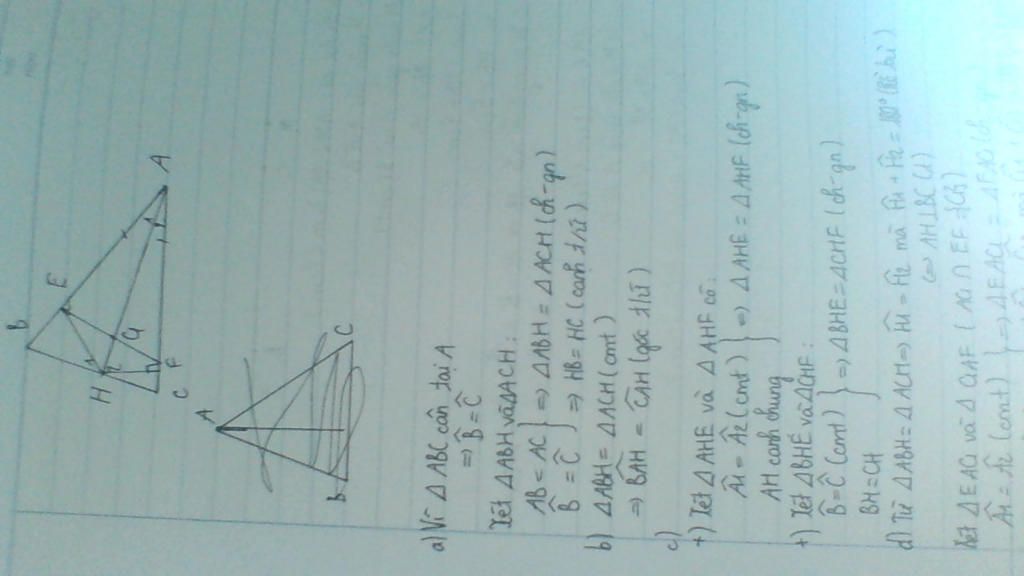 B
E
A
H
G
F
C
A
B
C
a) Vì Δ ABC cân tại A
=> B̂ = Ĉ
Xét Δ ABH và Δ ACH:
AB = AC
B̂ = Ĉ } => Δ ABH = Δ ACH (ch-gn)
=> HB = HC (cạnh t/ứ)
b) Δ ABH = Δ ACH (cmt)
=> BÂH = CÂH (góc t/ứ)
c)
+) Xét Δ AHE và Δ AHF có:
Â1 = Â2 (cmt)
AH cạnh chung } => Δ AHE = Δ AHF (ch-gn)
+) Xét Δ BHE và Δ CHF:
B̂ = Ĉ (cmt)
BH = CH } => Δ BHE = Δ CHF (ch-gn)
d) Từ Δ ABH = Δ ACH => Ĥ1 = Ĥ2 mà Ĥ1 + Ĥ2 = 180° (kề bù)
<=> AH ⊥ BC (1)
Xét Δ EAG và Δ GAF ( AG ∩ EF = {G})
Â1 = Â2 (cmt) } => Δ EAG = Δ FAG